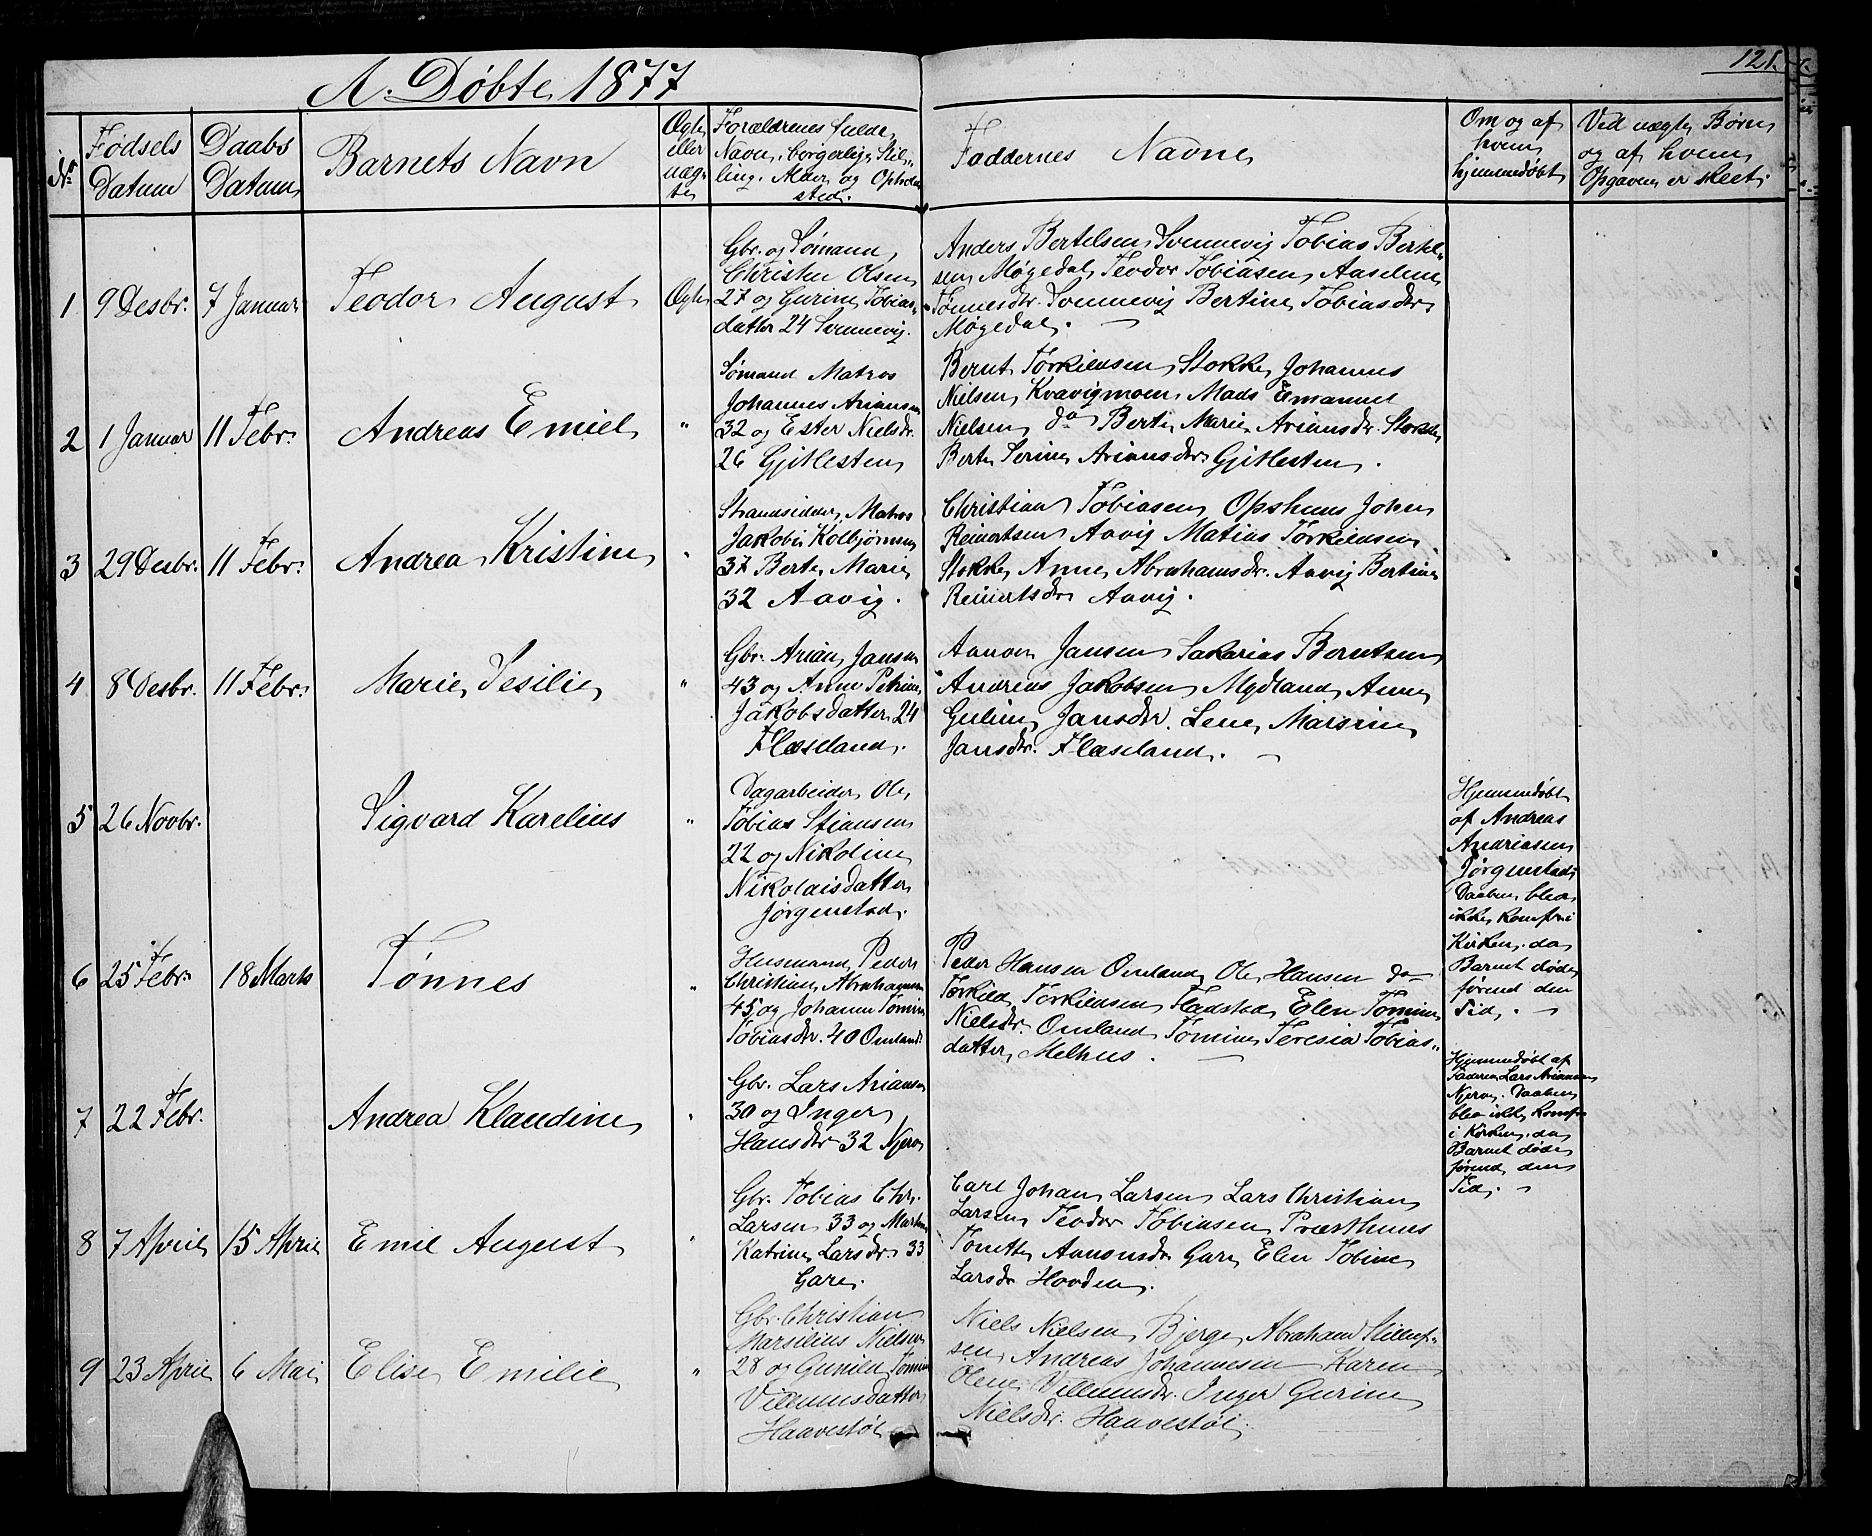 A. Døbte 1877
121.
No
Fødsels
Datum
Daabs
Datum
Barnets Navn
Ægte
eller
uæg-
te
Forældrenes fulde
Navn, borgerlige Stil-
ling, Alder og Opholds
sted.
Faddernes Navne
Om og af
hvem
hjemmedøbt
Ved uægte Børn
og af hvem
Opgaven er skeet.
1 9 Desbr. 7 Januar Teodor August Ægte
Gbr. og Sømand
Christen Olsen
27 og Gurine Tobias-
datter 24 Svennevig.
Anders Bertelsen Svennevig Tobias Bertel-
sen Møgedal, Teodor Tobiasen, Aaselene
Tønnesdr. Svennevig Bertine Tobiasdr
Møgedal.
2 1 Januar 11 Febr. Andreas Emiel "
Sømand Matros
Johannes Ariansen
32 og Ester Nielsdr.
26 Gjitlesten
Bernt Torkildsen Stokke Johannes
Nielsen Kvavigmoen Mads Emanuel
Nielsen do Berte Marie Ariansdr. Stokke
Berte Serine Ariansdr Gjitlesten.
3 29 Desbr. 11 Febr. Andrea Kristine "
Strandsidder, Matros
Jakob Kolbjørnsen
37 Berte Marie
32 Aavig.
Christian Tobiasen Opshuus Johan
Reinertsen Aavig Matias Torkildsen
Stokke Anne Abrahamsdr. Aavig Bertine
Reinertsdr Aavig.
4 8 Desbr. 11 Febr. Marie Sesilie "
Gbr. Arian Jansen
43 og Anne Petrine
Jakobsdatter 24
Flæseland.
Aanon Jansen Sakarias Berntsen
Andreas Jakobsen Mydland Anne
Guline Jansdr. Lene Marsrine
Jansdr. Flæseland.
5 26 Novbr. Sigvard Karelius "
Dagarbeider Ole
Tobias Stiansen
22 og Nikoline
Nikolaisdatter
Jørgenstad.
Hjemmedøbt
af Andreas
Andreasen
Jørgenstad
Daaben blev
ikke komfr. i
Kirken, da
Barnet døde
førend den
Tid.
6 25 Febr. 18 Marts Tønnes "
Husmand Peder
Christian Abrahamsen
45 og Johanne Tomine
Tobiasdr. 40 Omland
Peder Hansen Omland Ole Hansen do
Torkild Torkildsen Fladstad Elen Tomine
Nielsdr. Omland Tomine Teresia Tobias-
datter Melhus.
7 22 Febr. Andrea Klaudine "
Gbr. Lars Ariansen
30 og Inger
Hansdr 32 Njerve
Hjemmedøbt af
Faderen Lars Ariansen
Njerve. Daaben
blev ikke komfr.
i Kirken, da
Barnet døde
førend den
Tid.
8 7 April 15 April Emil August "
Gbr. Tobias Chr.
Larsen 33 og Marthe
Katrine Larsdr 33
Gare.
Carl Johan Larsen Lars Christian
Larsen Teodor Tobiasen Præsthuus
Tonette Aanonsdr Gare Elen Tobine
Larsdr Hovden.
9 23 April 6 Mai Elise Emilie "
Gbr. Christian
Marselius Nielsen
28 og Gunild Tomine
Villumsdatter
Haavestøl
Niels Nielsen Bjerge Abraham Stilluf-
sen Andreas Johannesen Karen
Olene Villumsdr. Inger Gurine
Nielsdr. Haavestøl.